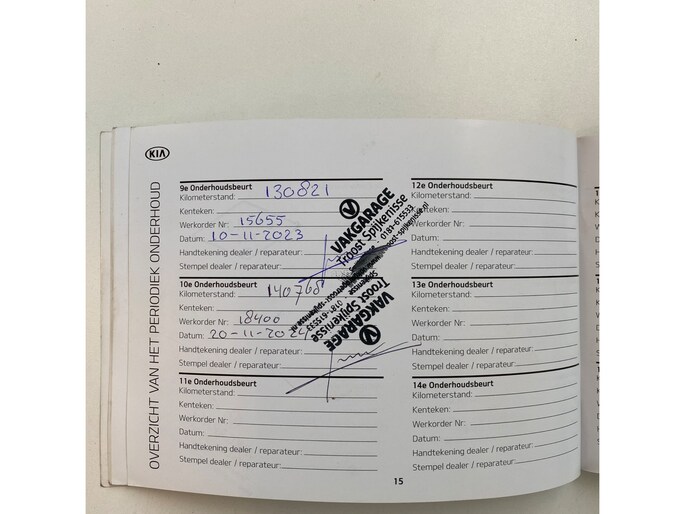 KIA
OVERZICHT VAN HET PERIODIEK ONDERHOUD
9e Onderhoudsbeurt
Kilometerstand: 130821
Kenteken:
Werkorder Nr: 15655
Datum: 10-11-2023
Handtekening dealer / reparateur:
Stempel dealer / reparateur:
VAKGARAGE
Troost Spijkenisse
0181-615533
10e Onderhoudsbeurt
Kilometerstand: 140768
Kenteken:
Werkorder Nr: 18400
Datum: 20-11-2024
Handtekening dealer / reparateur:
Stempel dealer / reparateur:
VAKGARAGE
Troost Spijkenisse
0181-615533
11e Onderhoudsbeurt
Kilometerstand:
Kenteken:
Werkorder Nr:
Datum:
Handtekening dealer / reparateur:
Stempel dealer / reparateur:
12e Onderhoudsbeurt
Kilometerstand:
Kenteken:
Werkorder Nr:
Datum:
Handtekening dealer / reparateur:
Stempel dealer / reparateur:
13e Onderhoudsbeurt
Kilometerstand:
Kenteken:
Werkorder Nr:
Datum:
Handtekening dealer / reparateur:
Stempel dealer / reparateur:
14e Onderhoudsbeurt
Kilometerstand:
Kenteken:
Werkorder Nr:
Datum:
Handtekening dealer / reparateur:
Stempel dealer / reparateur:
15